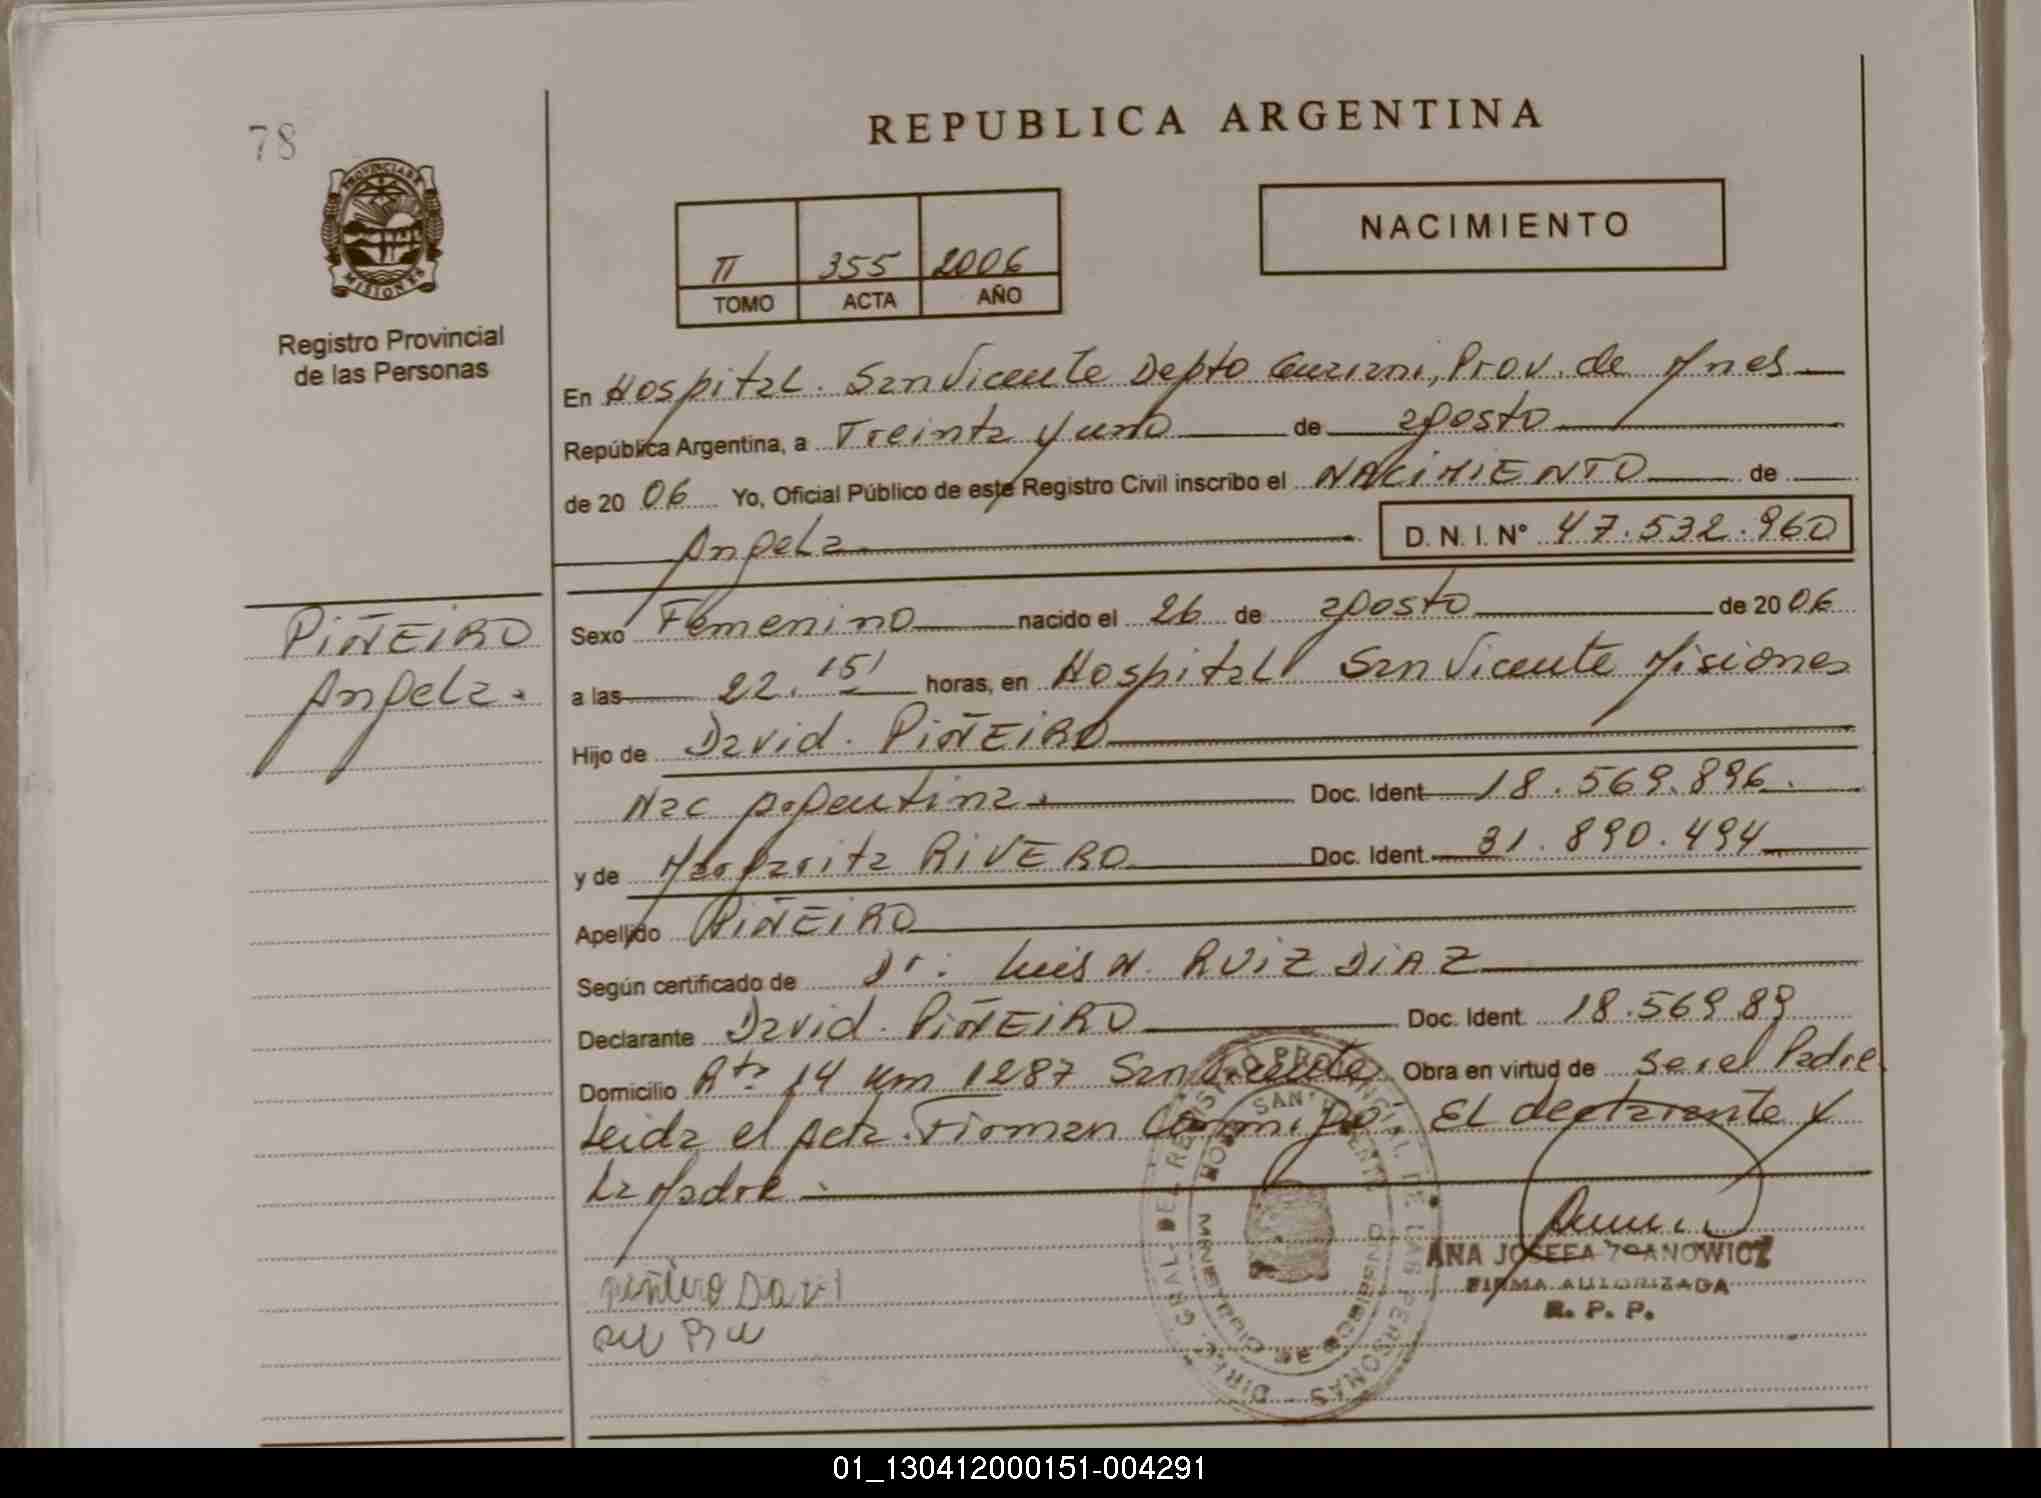 78
REPUBLICA ARGENTINA
PROVINCIA DE
MISIONES
Registro Provincial
de las Personas
II 355 2006
TOMO ACTA AÑO
NACIMIENTO
En Hospital. San Vicente Depto Guarani, Prov. de Mnes
República Argentina, a Treinta y uno de agosto
de 20 06 Yo, Oficial Público de este Registro Civil inscribo el NACIMIENTO de
Angela D. N. I. Nº 47.532.960
PIÑEIRO
Angela.
Sexo Femenino nacido el 26 de agosto de 20 06
a las 22. 15' horas, en Hospital San Vicente Misiones
Hijo de David. PIÑEIRO
Nac Argentina. Doc. Ident 18.569.896.
y de Margarita RIVERO Doc. Ident. 31.890.494
Apellido PIÑEIRO
Según certificado de Dr. Luis N. RUIZ DIAZ
Declarante David. PIÑEIRO Doc. Ident. 18.569 89
Domicilio Rta 14 km 1287 San Vicente Obra en virtud de ser el Padre
Leida el Acta. Firman Conmigo: EL declarante y
La Madre.
ANA JOSEFA
FIRMA AUTORIZADA
R. P. P.
piñeiro Davi
DIREC. GRAL. DEL REGISTRO PROVINCIAL DE LAS PERSONAS
01_130412000151-004291